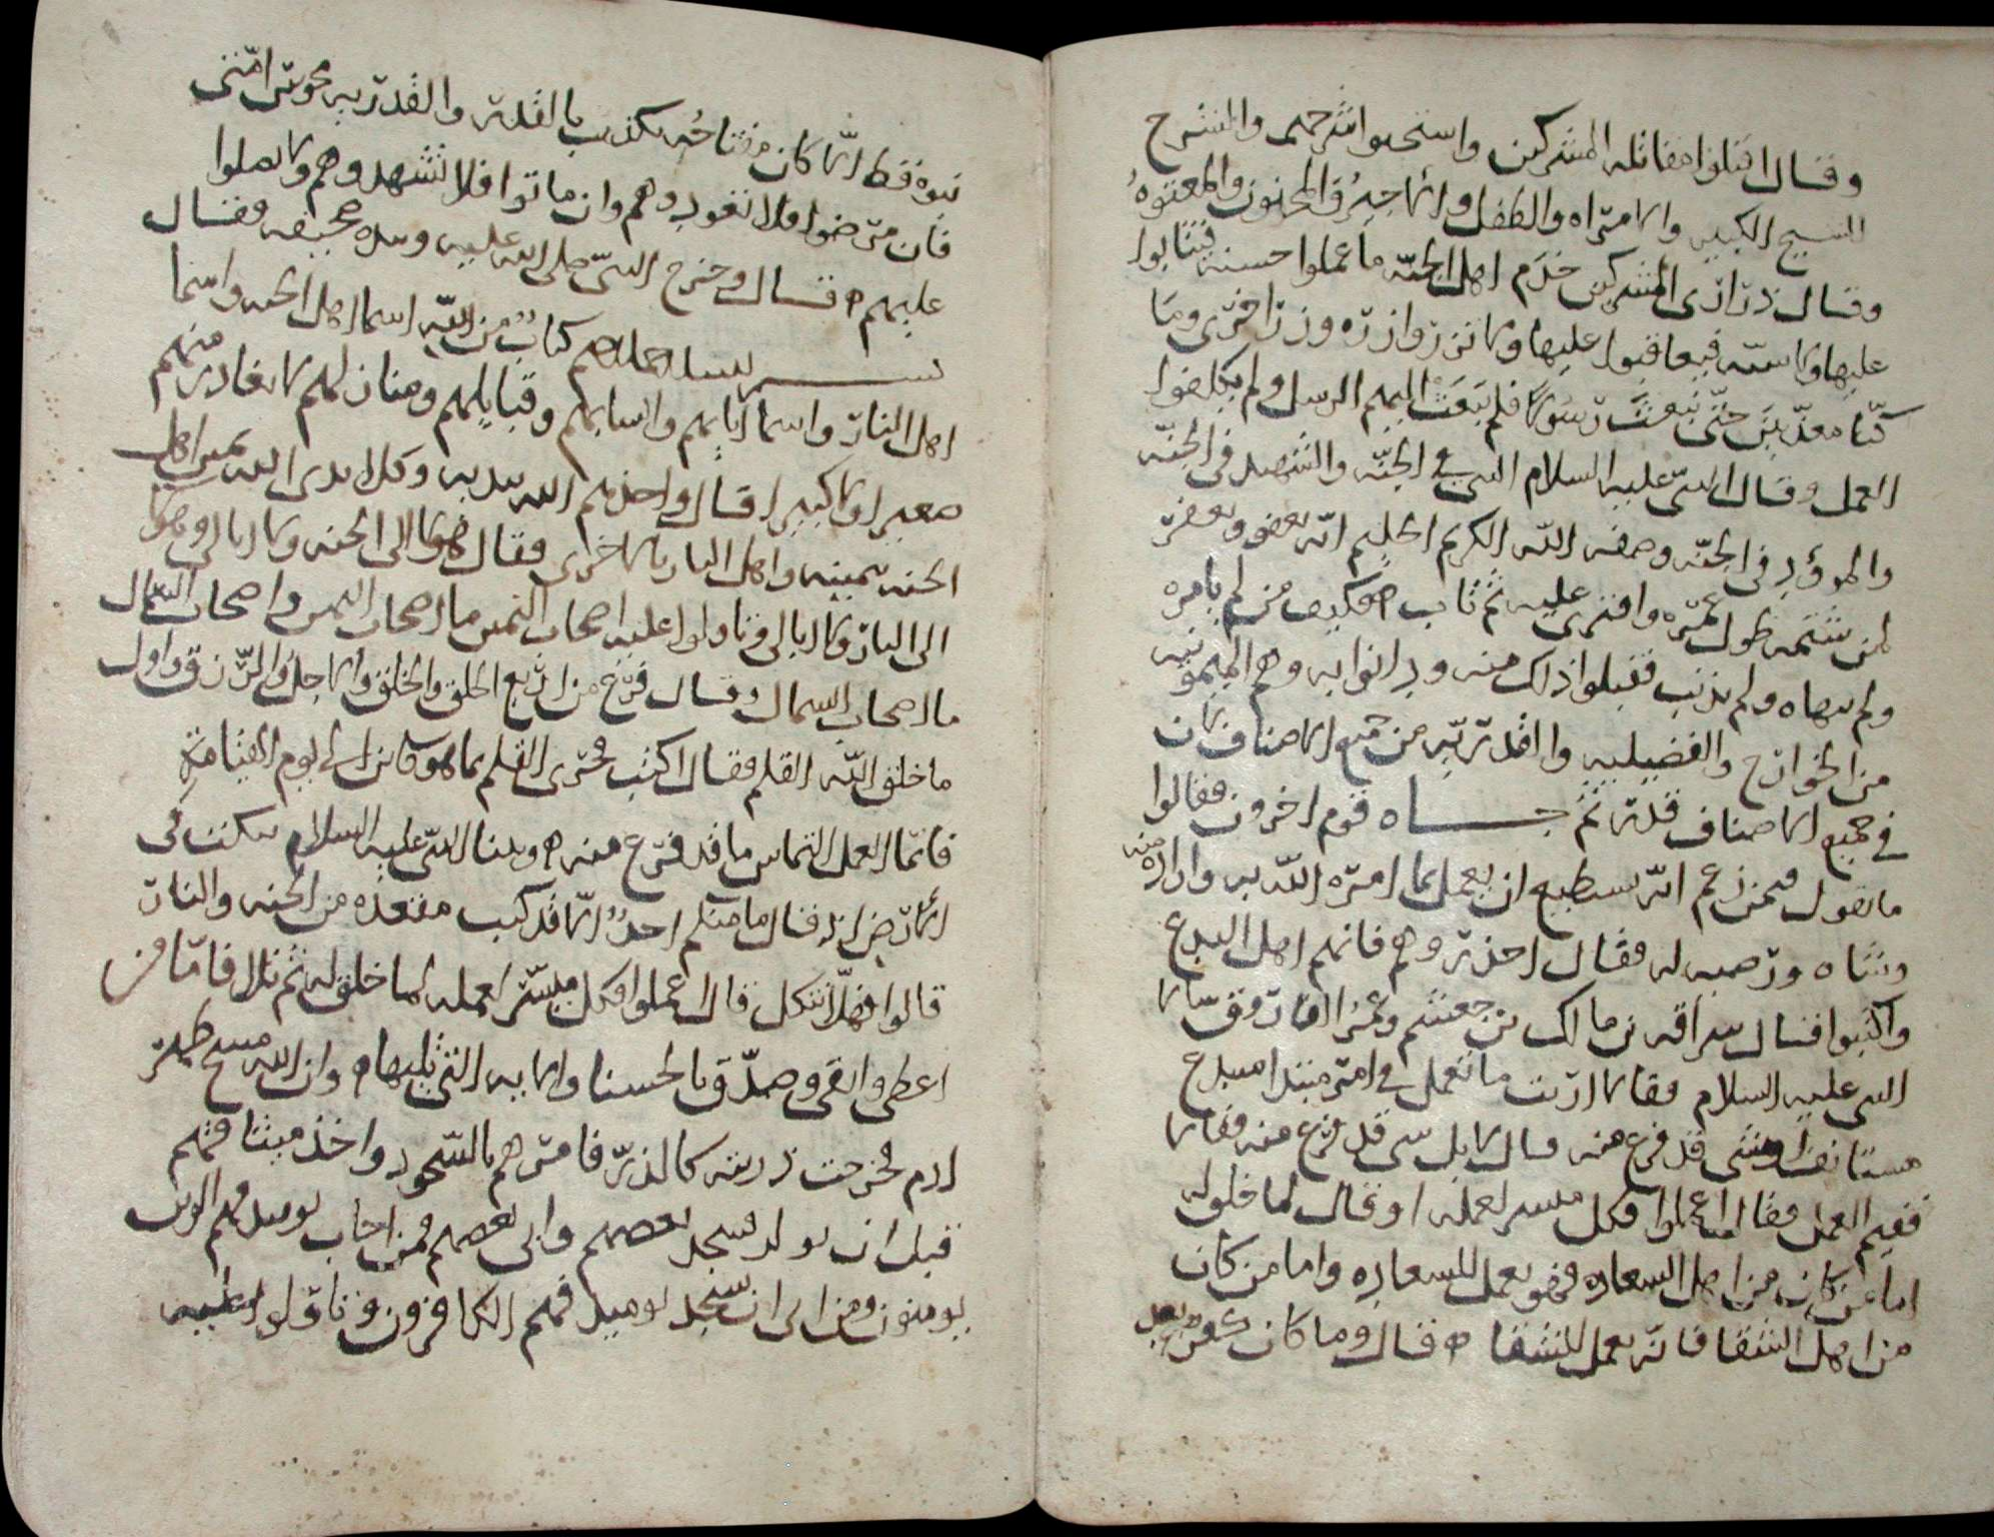 وقال اقتلوا مقاتله المشركين واستحيوا شرخهم والشرخ
الشيخ الكبير والامراه والطفل والاجير والمجنون والمعتوه
وقال ذراري المشركين خدم اهل الجنه ما عملوا حسنه فيثابوا
عليها ولا سيه فيعاقبوا عليها ولا تزر وازره وزر اخرى وما
كنا معذبين حتى نبعث رسولا فلم يبعث اليهم الرسل ولم يكلفوا
العمل وقال النبي عليه السلام النبي في الجنه والشهيد في الجنه
والموؤد في الجنه وصفه الله الكريم الحليم انه يعفو ويغفر
لمن شتمه طول عمره وافترى عليه ثم تاب فكيف من لم يامره
ولم ينهاه ولم يذنب فقبلوا ذلك منه ودانوا به وهم الميمونيه
من الخوارج والفضيليه والقدريه من جميع الاصناف لان
في جميع الاصناف قدريه ثم جاه قوم اخرون فقالوا
ما تقول فيمن زعم انه يستطيع ان يعمل بما امره الله به واراده منه
وشاه ورضيه له فقال احذروهم فانهم اهل البدع
واكتبوا قال سراقه بن مالك بن جعشم وعمر الفاروق سالا
النبي عليه السلام فقالا ارايت ما نعمل في امر مبتدا مبتدع
مستانف او شي قد فرغ منه قال لا بل شي قد فرغ منه فقالا
ففيم العمل فقال اعملوا فكل ميسر لعمله او قال لما خلق له
اما من كان من اهل السعاده فهو يعمل للسعاده واما من كان
من اهل الشقا فانه يعمل للشقا قال وما كان كفر بعد
نبوه قط الا كان مفتاحه تكذيب بالقدر والقدريه مجوس امتي
فان مرضوا فلا تعودوهم وان ماتوا فلا تشهدوهم ولا تصلوا
عليهم قال وخرج النبي صلى الله عليه وبيده صحيفه فقال
بسم الله الرحمن الرحيم كتاب من الله اسما اهل الجنه واسما
اهل النار واسما ابايهم وانسابهم وقبايلهم ومنازلهم لا يغادر منهم
صغيرا ولا كبيرا قال واخذهم الله بيديه وكلا يدي الله يمين اهل
الجنه بيمينه واهل النار بالاخرى فقال هولا الى الجنه ولا ابالي وهولا
الى النار ولا ابالي وتاولوا عليه اصحاب اليمين ما اصحاب اليمين واصحاب الشمال
ما اصحاب الشمال وقال فرغ من اربع الخلق والخلق والاجل والرزق واول
ما خلق الله القلم فقال اكتب فجرى القلم بما هو كاين الى يوم القيامه
فانما العمل التماس ما قد فرغ منه وبينا النبي عليه السلام ينكت في
الارض اذ قال ما منكم احد الا قد كتب مقعده من الجنه والنار
قالوا فهلا نتكل قال اعملوا فكل ميسر لعمله لما خلق له ثم تلا فاما من
اعطى واتقى وصدق بالحسنا والايه التي تليها وان الله مسح ظهر
ادم فخرجت ذريته كالذر فامرهم بالسجود واخذ ميثاقهم
قبل ان يولدوا فسجد بعضهم وابى بعضهم فمن اجاب يوميذ فهم الذين
يومنون ومن ابى ان يسجد يوميذ فهم الكافرون وتاولوا عليه